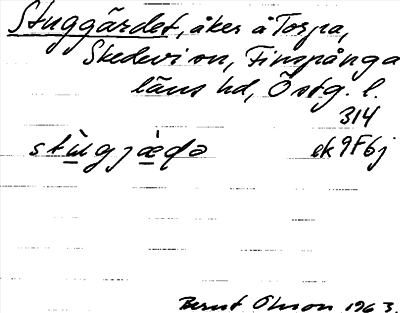 Stuggärdet, åker å Torpa,
Skedevi sn, Finspånga
läns hd, Östg. l.
314
stùgjæ̀ḍə ek 9F6j
Bernt Olsson 1963.